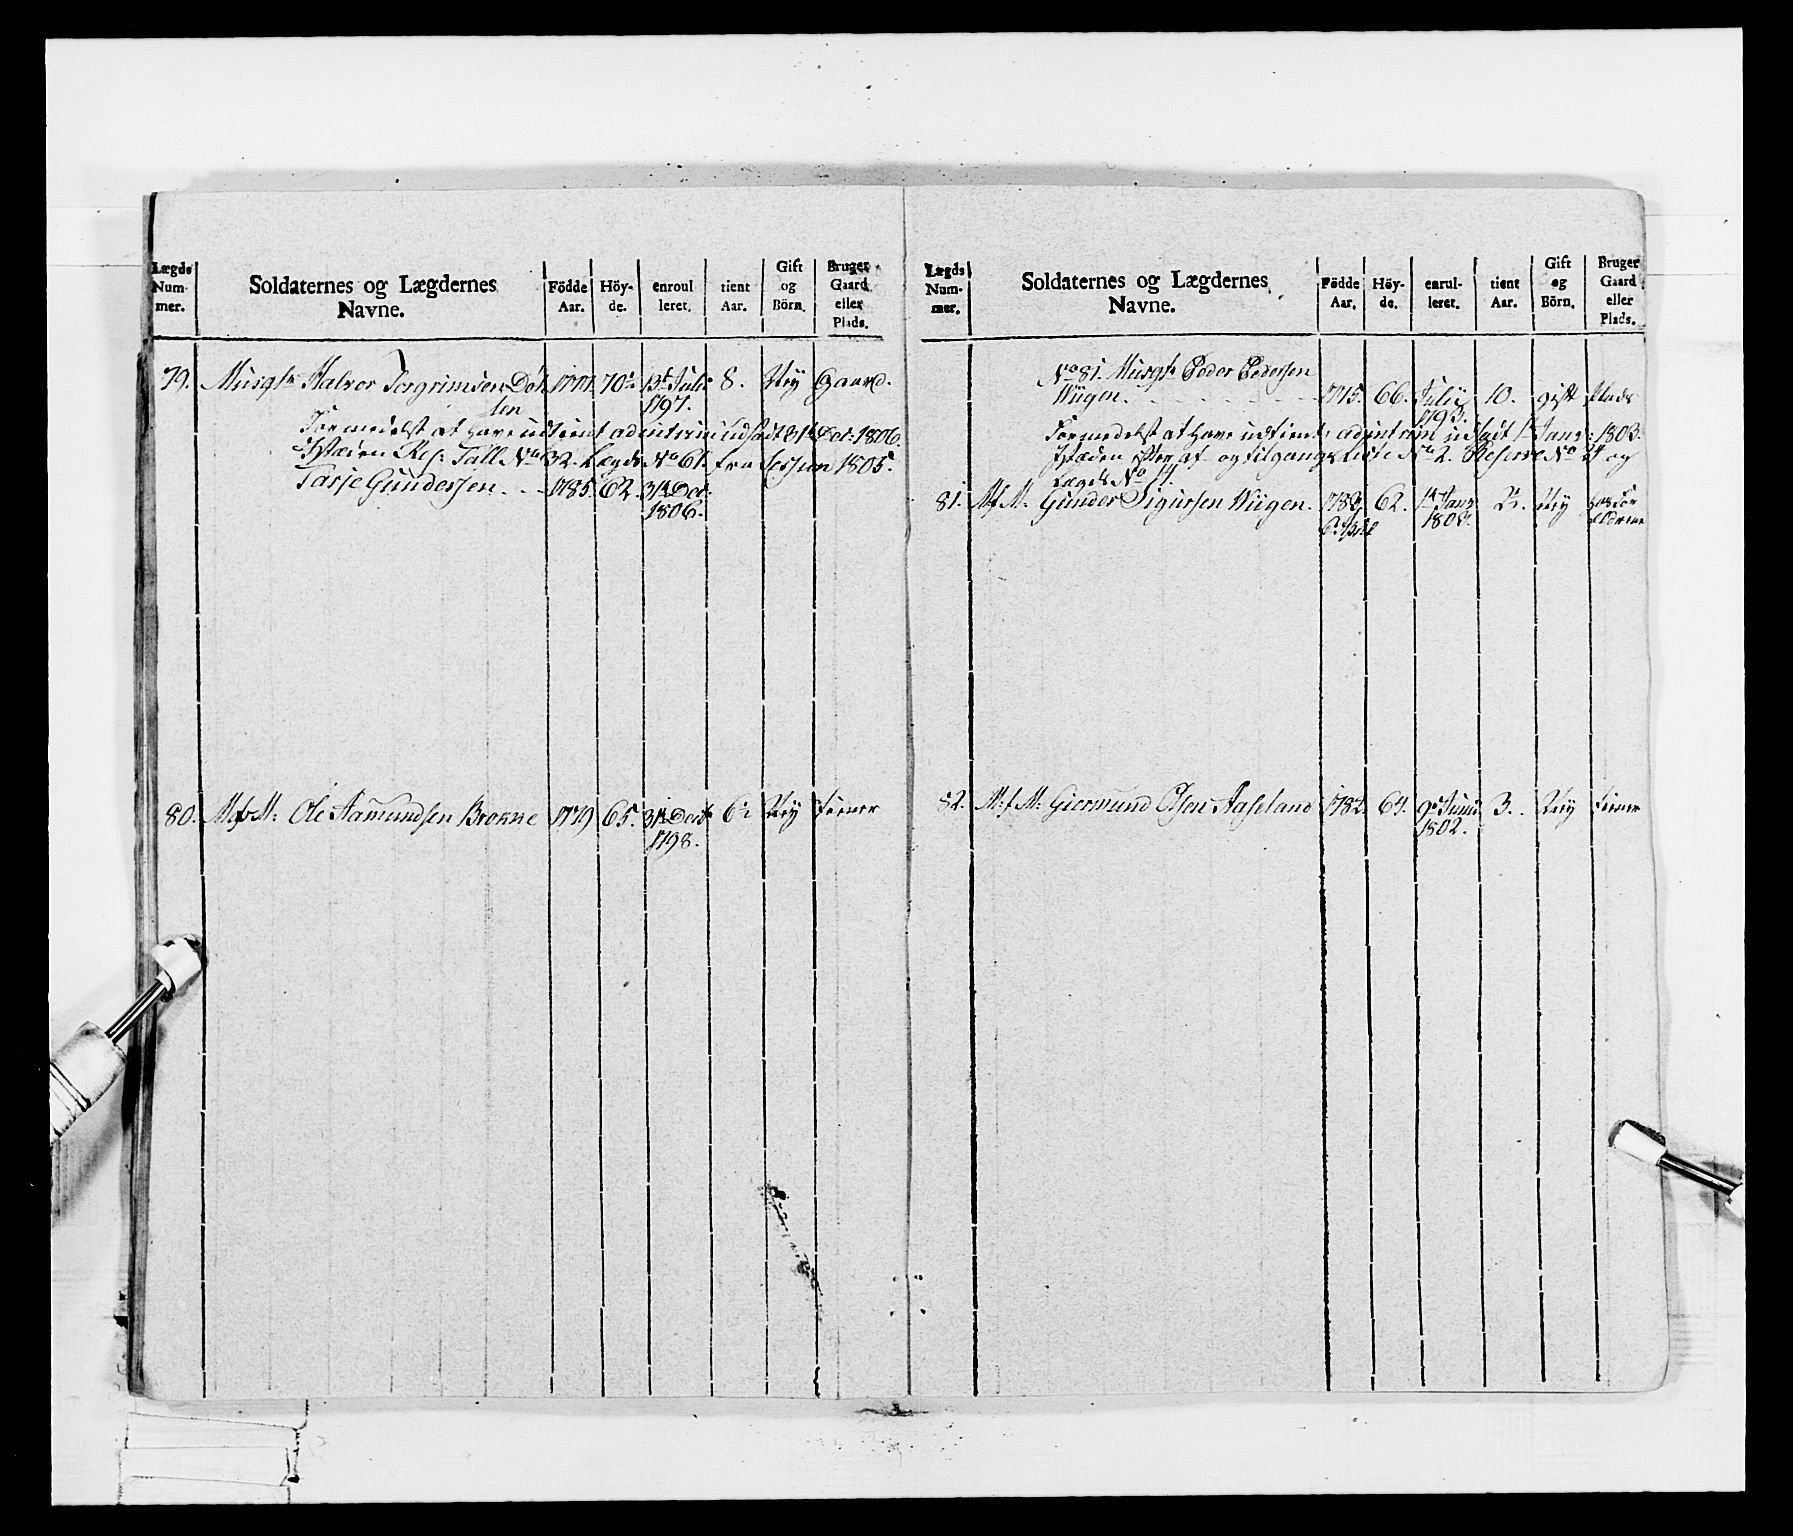 Lægds Num- mer.
Soldaternes og Lægdernes Navne.
Födde Aar.
Höy- de.
enroul leret.
tient Aar.
Gift og Börn.
Bruger Gaard eller Plads.
79. Musqtr Halvor Torgrimsen Døl 1771. 70. 13t Julii 8. Ney Gaard.
len 1797.
Formedelst at have udtient ad interim udsadt 31t Dec: 1806.
Istæden Res: Tall No 32. Lægds No 61. fra Session 1805.
Tarje Gundersen . . 1785. 62. 31t Dec:
1806.
80. M:f:M: Ole Aamundsen Brokke 1779 65. 31t Decbr 6. Ney tiener
1798.
Lægds Num- mer.
Soldaternes og Lægdernes Navne.
Födde Aar.
Höy- de.
enrul- leret.
tient Aar.
Gift og Börn.
Bruger Gaard eller Plads.
No 81. Musqtr Peder Pedersen
Wiigen. 1775. 66. Julii 10. gift Plads
1793.
Formedelst at have udtient, ad interim udsadt 1t Janr: 1803.
Istæden efter af- og tilgangs Liste No 2. Reserve No og
Lægds No 14.
81. M:f:M: Gunder Sigursen Wiigen. 62. 1t Janr 2. Ney hos For
ældrene
82. M:f:M: Giermund Olsen Aaseland 1782. 64. 9. Junii 3. Ney tiener
1802.